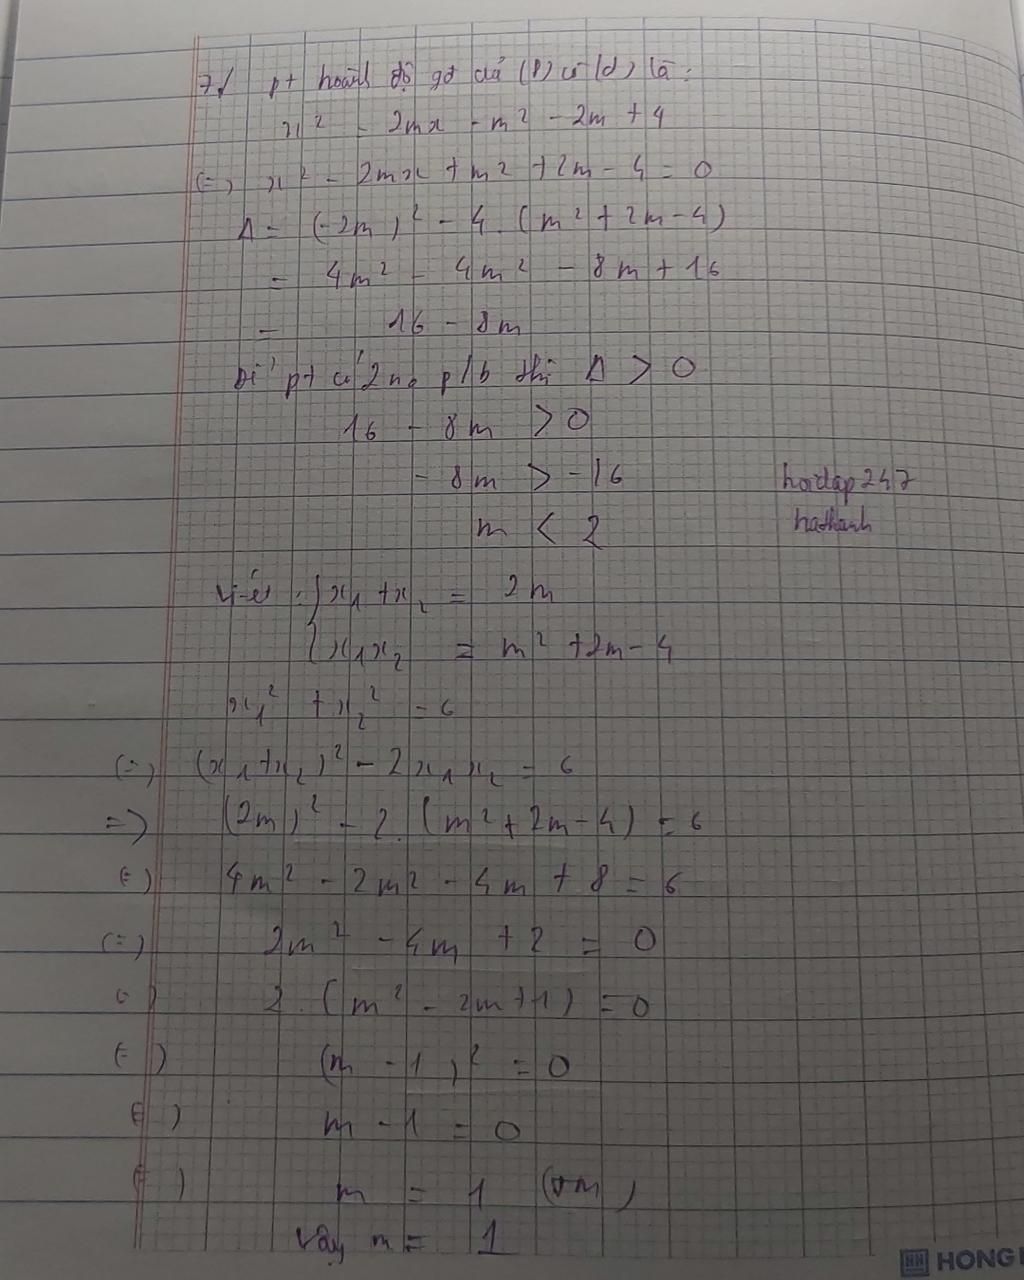 7/ pt hoành độ gđ của (P) và (d) là:
x² = 2mx - m² - 2m + 4
(=) x² - 2mx + m² + 2m - 4 = 0
Δ = (-2m)² - 4.(m² + 2m - 4)
= 4m² - 4m² - 8m + 16
= 16 - 8m
Để pt có 2 no p/b thì Δ > 0
16 - 8m > 0
- 8m > -16
hoidap247
m < 2
hathanh
Vi-ét: { x₁ + x₂ = 2m
{ x₁x₂ = m² + 2m - 4
x₁² + x₂² = 6
(=) (x₁+x₂)² - 2x₁x₂ = 6
=> (2m)² - 2.(m² + 2m - 4) = 6
(=) 4m² - 2m² - 4m + 8 = 6
(=) 2m² - 4m + 2 = 0
(=) 2.(m² - 2m + 1) = 0
(=) (m - 1)² = 0
(=) m - 1 = 0
(=) m = 1 (tm)
Vậy m = 1
HONG